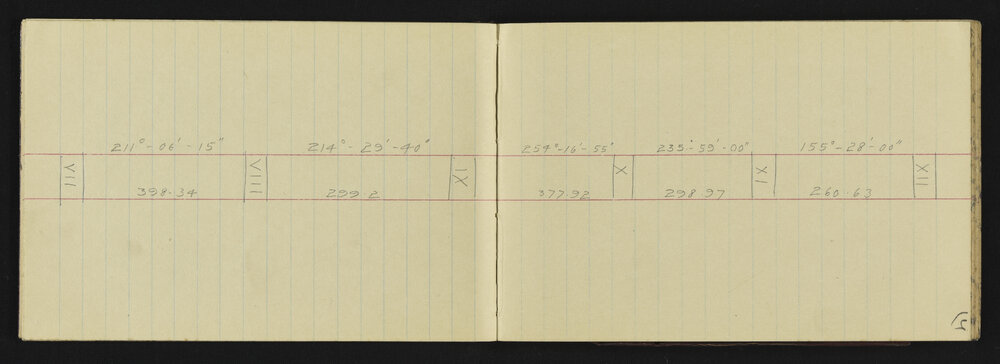 211° - 06' - 15"
214° - 29' - 40"
254° - 16' - 55"
235° - 59' - 00"
155° - 28' - 00"
VII
VIII
IX
X
XI
XII
398.34
299.2
377.92
298.97
260.63